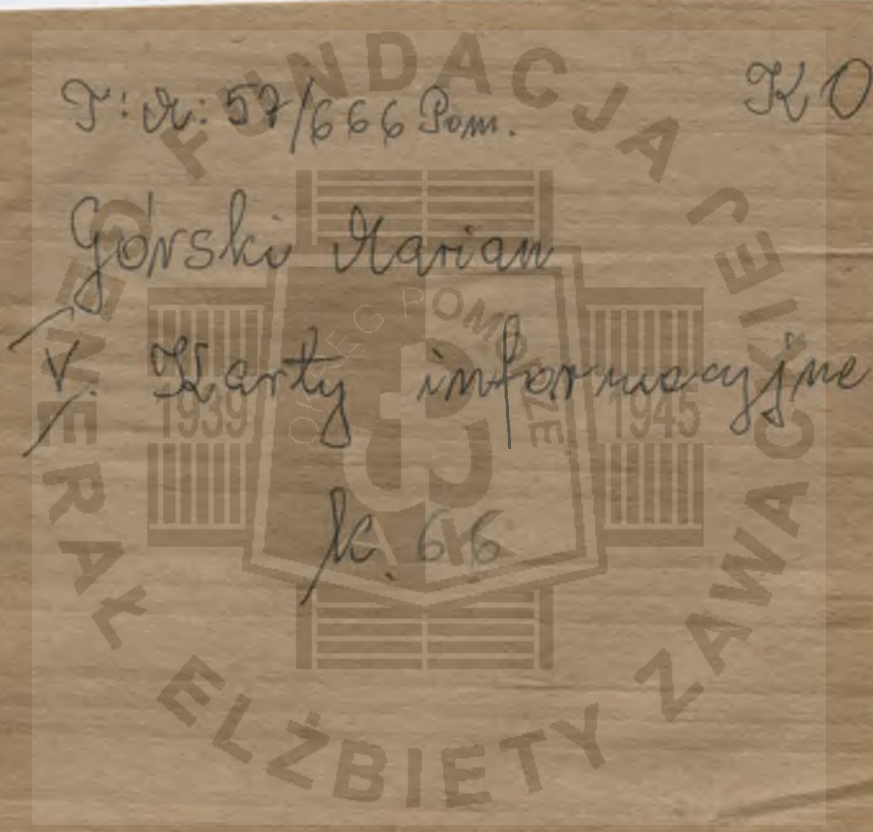 T: M: 57/666 Pom. KO
Górski Marian
V. Karty informacyjne
k. 66
FUNDACJA GENERAŁ ELŻBIETY ZAWACKIEJ
OKRĘG POMORZE
1939 1945
AK